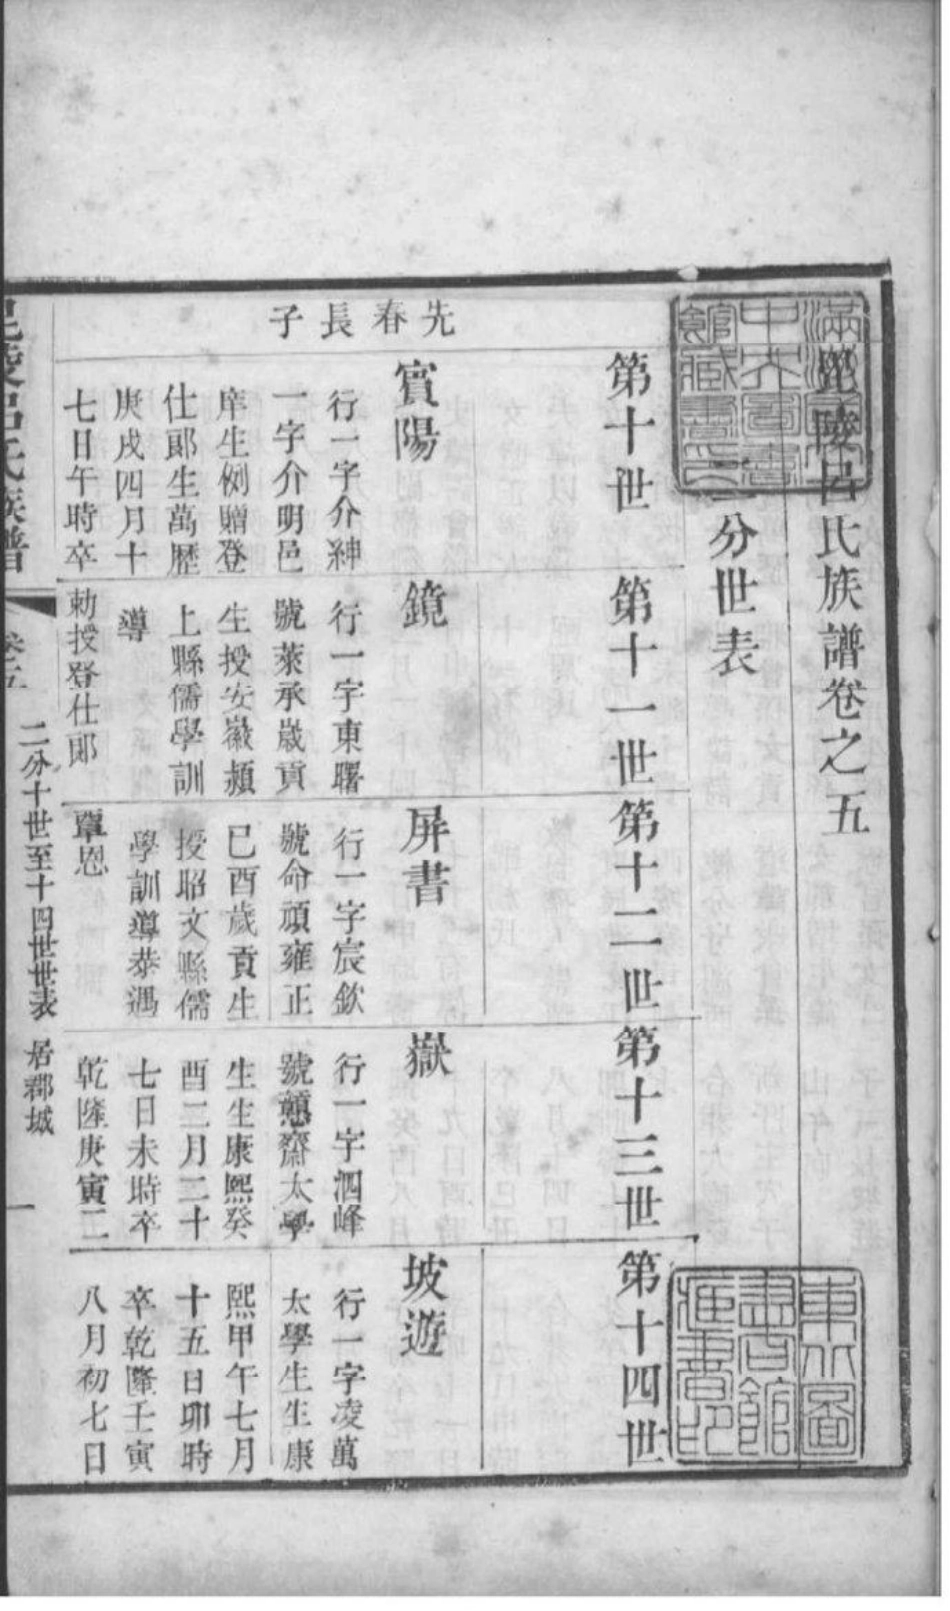 毘陵呂氏族譜卷之五
二分世表
第十世
第十一世
第十二世
第十三世
第十四世
先春長子
賓陽
行一字介紳
一字介明邑
庠生例贈登
仕郞生萬歷
庚戌四月十
七日午時卒
鏡
行一字東曙
號萊承歲貢
生授安徽潁
上縣儒學訓
導
勅授登仕郞
屏書
行一字宸欽
號命頑雍正
已酉歲貢生
授昭文縣儒
學訓導恭遇
覃恩
嶽
行一字泗峰
號戇齋太學
生生康熙癸
酉二月二十
七日未時卒
乾隆庚寅二
坡遊
行一字凌萬
太學生生康
熙甲午七月
十五日卯時
卒乾隆壬寅
八月初七日
毘陵呂氏族譜
卷五
二分十世至十四世世表
居郡城
一